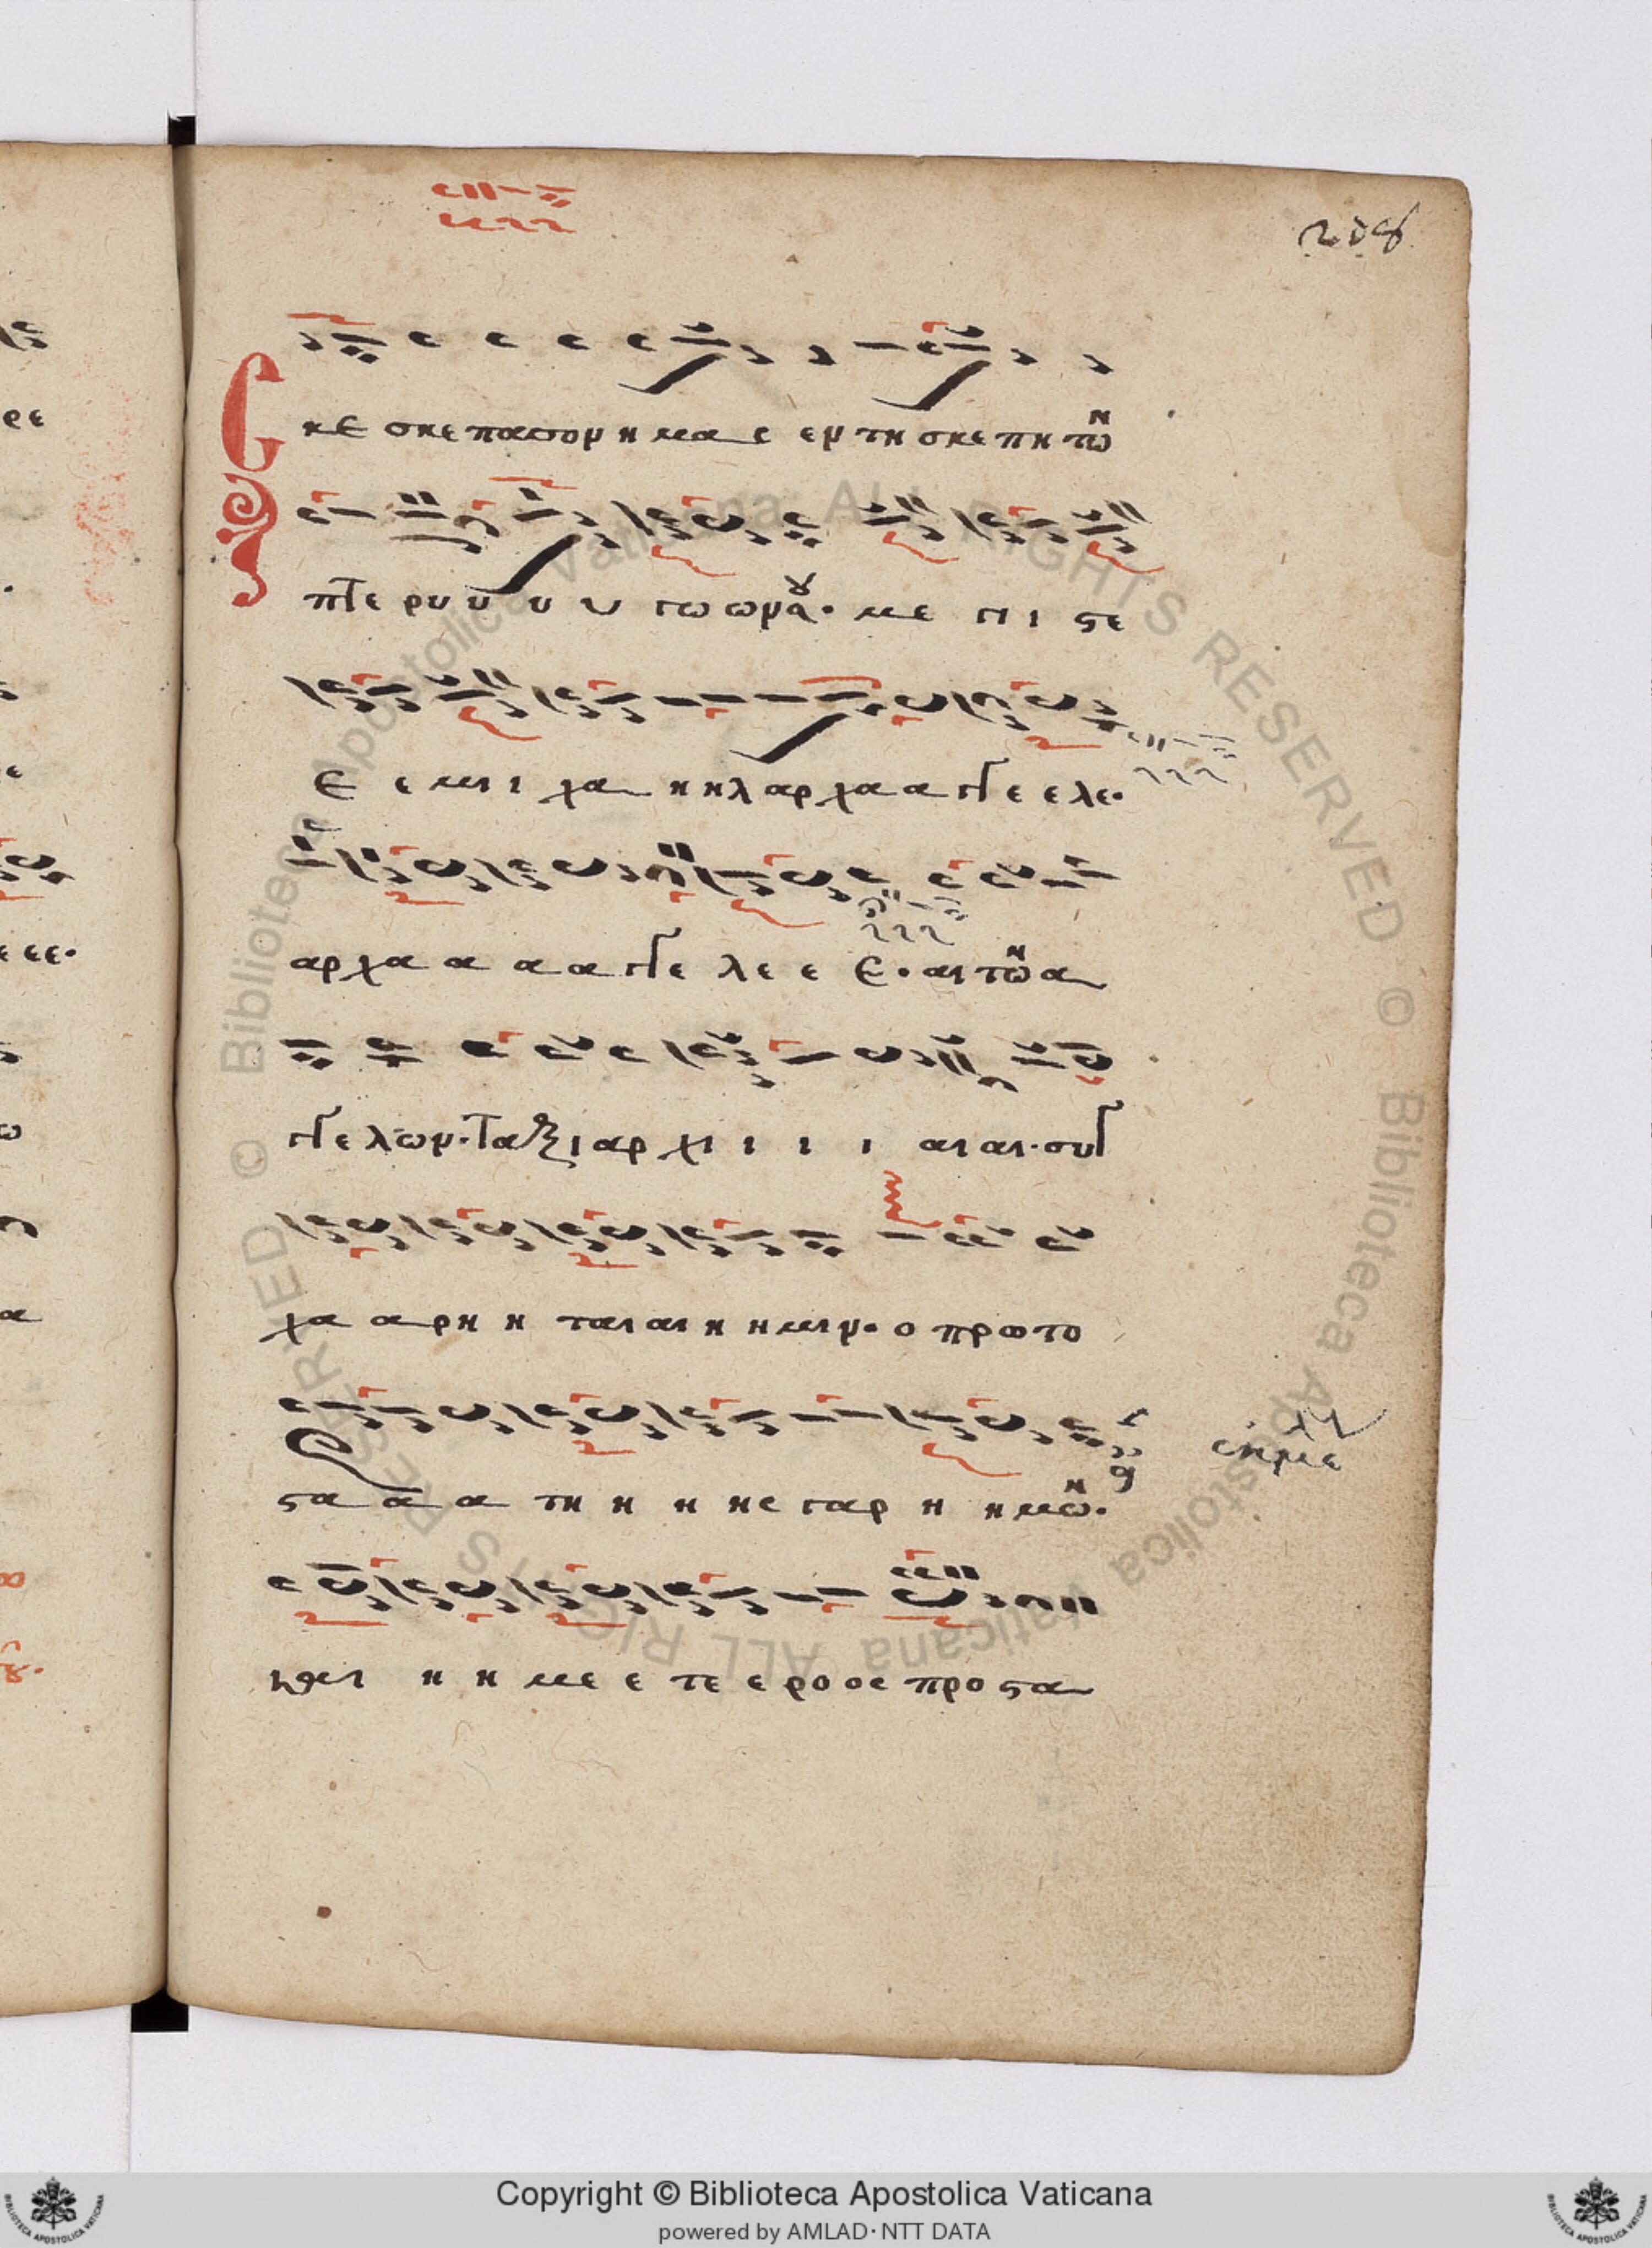 κε σκεπασον η μας εν τη σκεπη τῶν
πτε ρυ υ υ υ γω ων σου· με γι στε
ε ε μι ι χα η ηλ αρ χα α γγε ε λε·
αρ χα α α α γγε λε ε ε· αι τῶν α
γγε λων· ταξι αρ χι ι ι ι αι αι· συγ
χα α ρη η ται αι η η μιν· ο πρωτο
στα α α τη η η ης γαρ η η μῶν·
η η με ε τε ε ρο ος προ στα
Copyright © Biblioteca Apostolica Vaticana
powered by AMLAD·NTT DATA